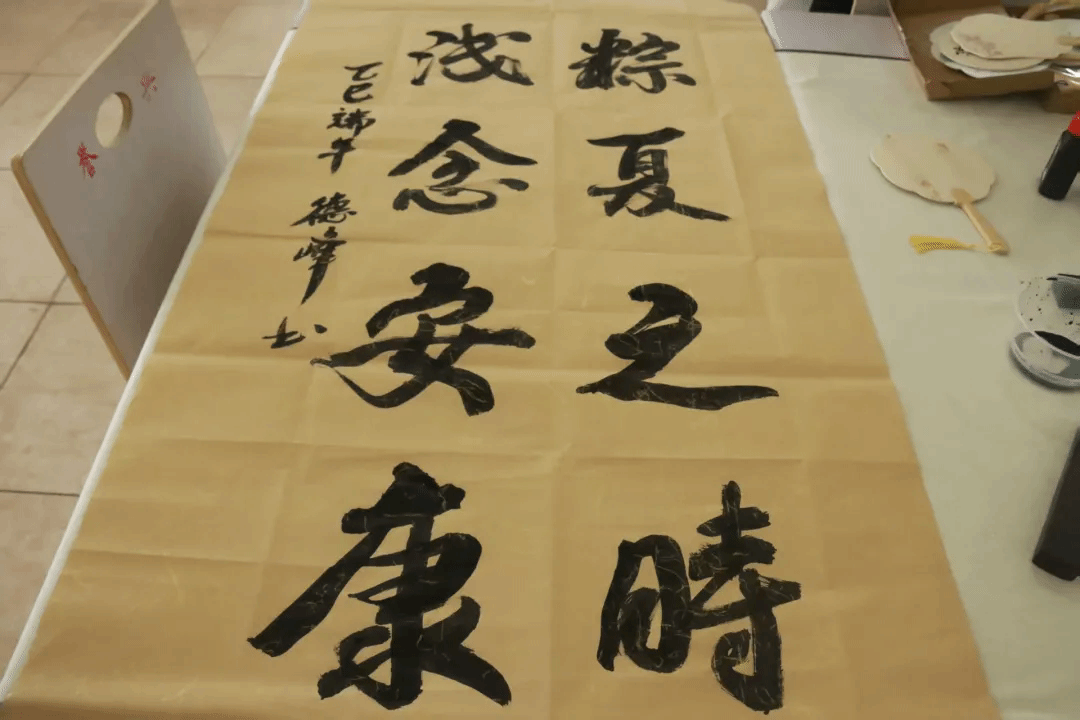 粽夏之時
浅念安康
乙巳端午 德峰书